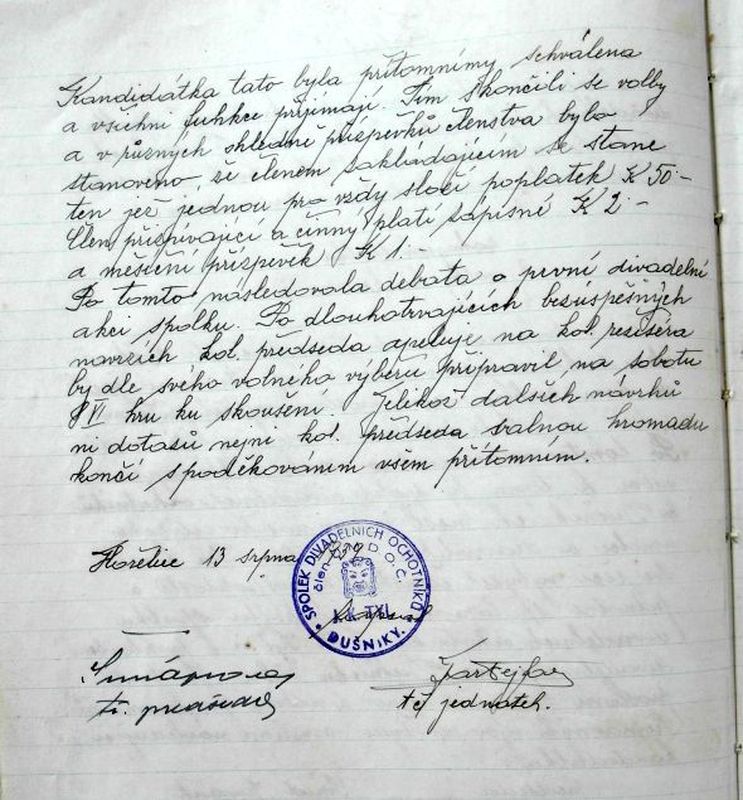 Kandidátka tato byla přítomnímy schválena
a všichni fuhkce přijímají. Tím skončili se volby
a v různých ohledně příspěvků členstva bylo
stanoveno, že členem zakládajícím se stane
ten jež jednou pro vždy složí poplatek K 50.-
Člen přispívající a činný platí zápisné K 2.-
a měsíční příspěvek K 1.-
Po tomto následovala debata o první divadelní
akci spolku. Po dlouhatrvajících bezúspěšných
navrzích kol. předseda apeluje na kol. režiséra
by dle svého volného výběru připravil na sobotu
VI hru ku zkoušení. Jelikož dalších návrhů
ni dotazů nejni kol. předseda valnou hromadu
končí s poděkováním všem přítomním.
Hořelice 13 srpna
SPOLEK DIVADELNÍCH OCHOTNÍKŮ
člen D.O.Č.
J.K. TYL
DUŠNIKY.
tč jednatel.